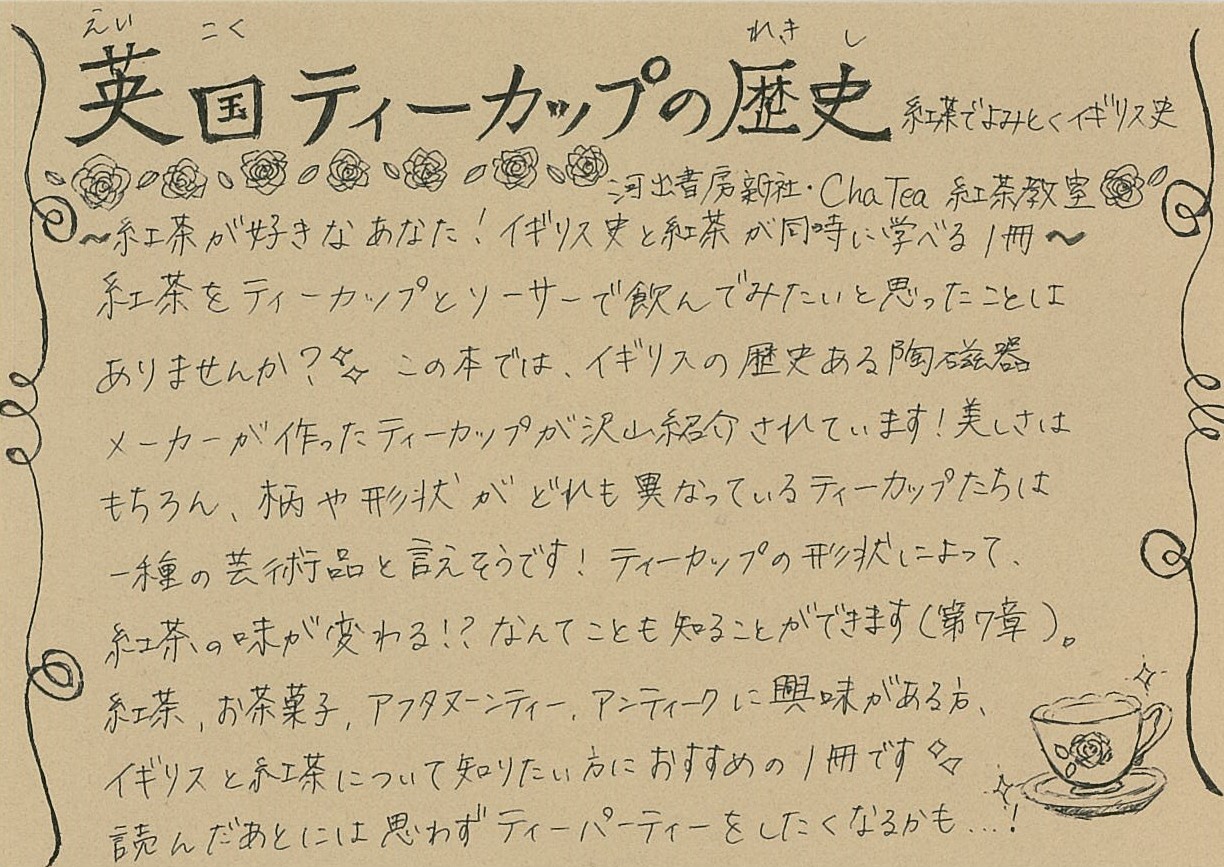 えい こく れき し
英国ティーカップの歴史 紅茶でよみとくイギリス史
河出書房新社・ChaTea 紅茶教室
~紅茶が好きなあなた！イギリス史と紅茶が同時に学べる1冊~
紅茶をティーカップとソーサーで飲んでみたいと思ったことは
ありませんか？この本では、イギリスの歴史ある陶磁器
メーカーが作ったティーカップが沢山紹介されています！美しさは
もちろん、柄や形状がどれも異なっているティーカップたちは
一種の芸術品と言えそうです！ティーカップの形状によって、
紅茶の味が変わる！？なんてことも知ることができます(第7章)。
紅茶,お茶菓子,アフタヌーンティー,アンティークに興味がある方、
イギリスと紅茶について知りたい方におすすめの1冊です
読んだあとには思わずティーパーティーをしたくなるかも…！